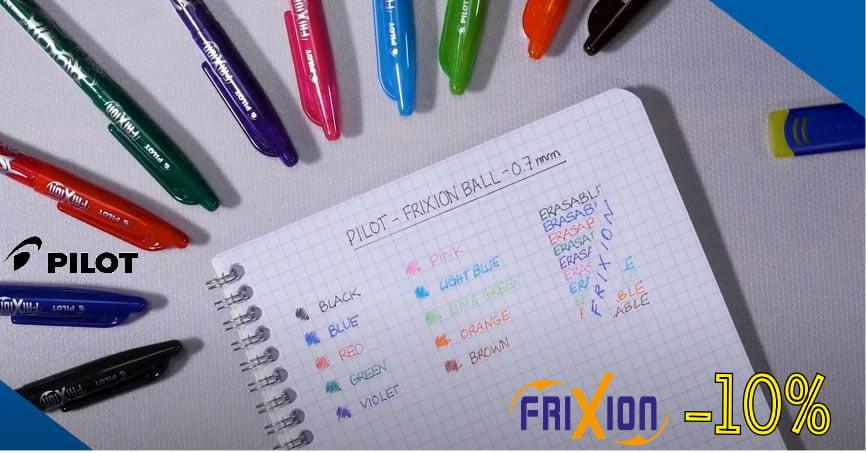 PILOT
FRIXION
PILOT
FRIXION
PILOT
PILOT
PILOT
PILOT
FRIXION
PILOT
FRIXION
PILOT
FRIXION
PILOT
PILOT
PILOT - FRIXION BALL - 0.7 mm
BLACK
BLUE
RED
GREEN
VIOLET
PINK
LIGHT BLUE
LIME GREEN
ORANGE
BROWN
ERASABL
ERASAB
ERASA
ERASA
ERAS
ERAS
ER
E
BLE
ABLE
FRIXION
FRIXION
-10%